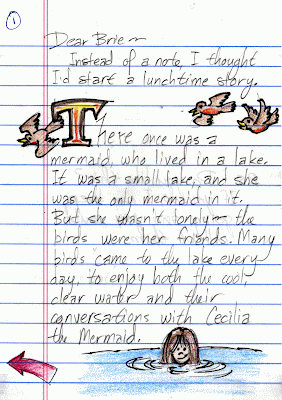 1
Dear Brie~
Instead of a note, I thought
I'd start a lunchtime story.
There once was a
mermaid, who lived in a lake.
It was a small lake, and she
was the only mermaid in it.
But she wasn't lonely~ the
birds were her friends. Many
birds came to the lake every
day, to enjoy both the cool,
clear water and their
conversations with Cecilia
the Mermaid.